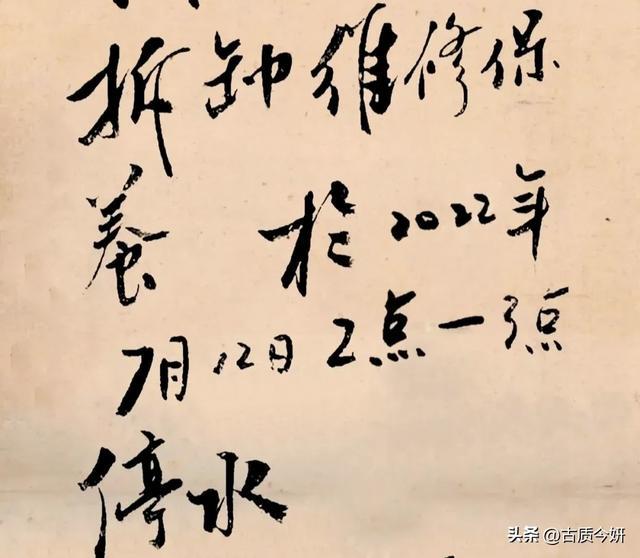 拆卸维修保
养 於2022年
7月12日2点一3点
停水
头条 @古质今妍